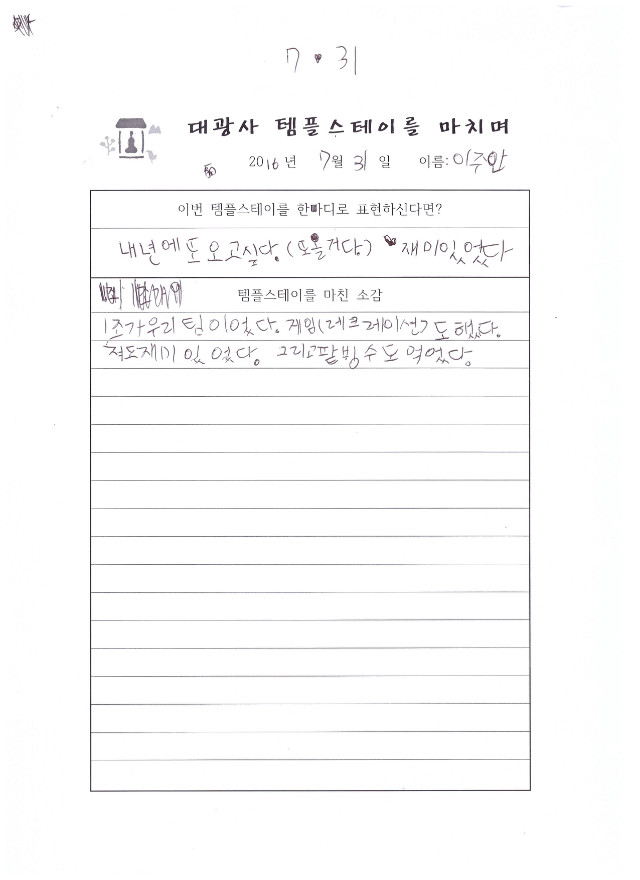 7 • 31
대광사 템플스테이를 마치며
2016년 7월 31일 이름: 이주안
이번 템플스테이를 한마디로 표현하신다면?
내년에 또 오고싶다. (또올거다) 재미있었다
템플스테이를 마친 소감
1조가우리팀이었다. 게임(레크레이션)도했다.
재미있었다. 그리고팥빙수도먹었다.